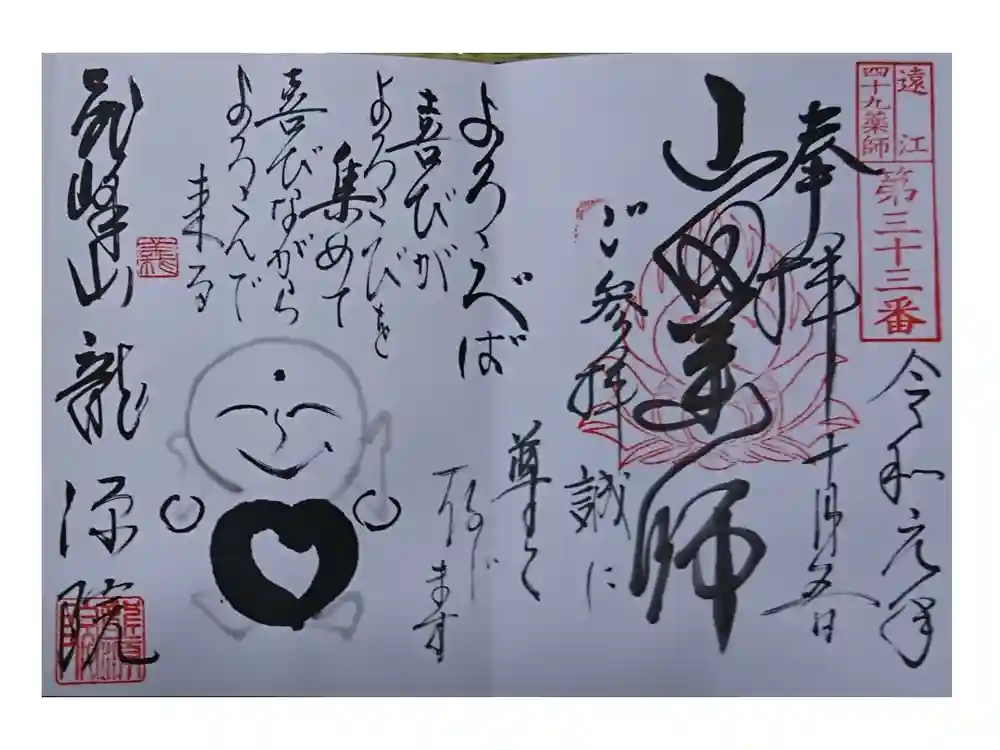 遠江
四十九薬師
第三十三番
令和元年
奉拝
十月五日
山薬師
ご参拝
誠に
尊く
存じます
よろこべば
喜びが
よろこびを
集めて
喜びながら
よろこんで
来る
飛峰山
龍源院